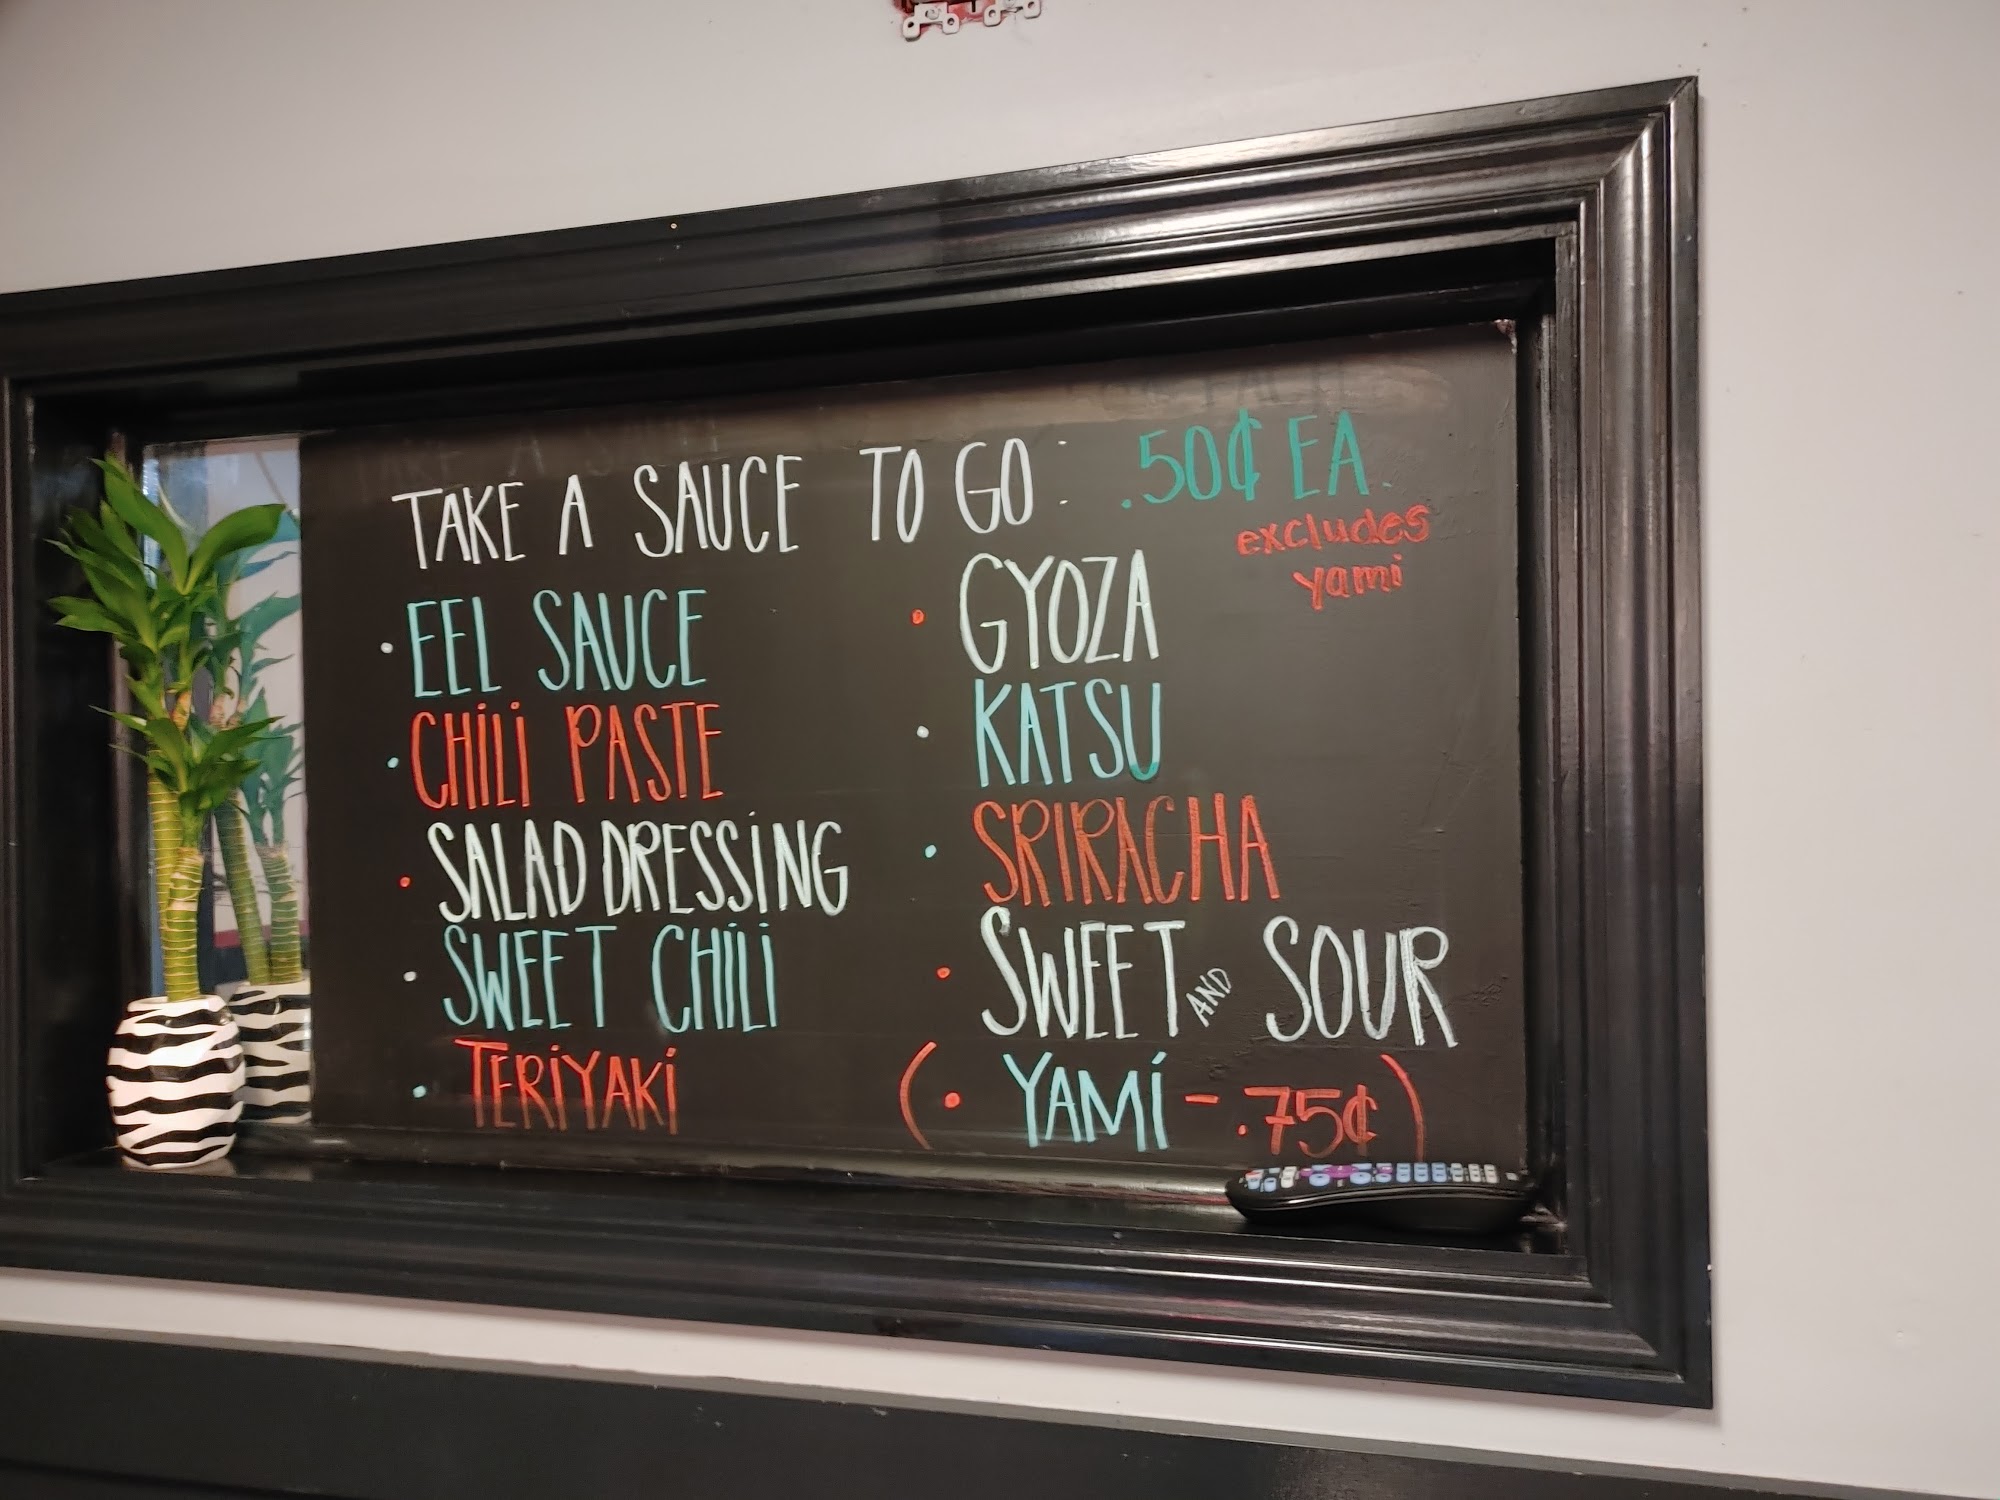 TAKE A SAUCE TO GO: .50¢ EA.
excludes
yami
• EEL SAUCE
• CHILI PASTE
• SALAD DRESSING
• SWEET CHILI
• TERIYAKI
• GYOZA
• KATSU
• SRIRACHA
• SWEET AND SOUR
(• YAMI - .75¢)